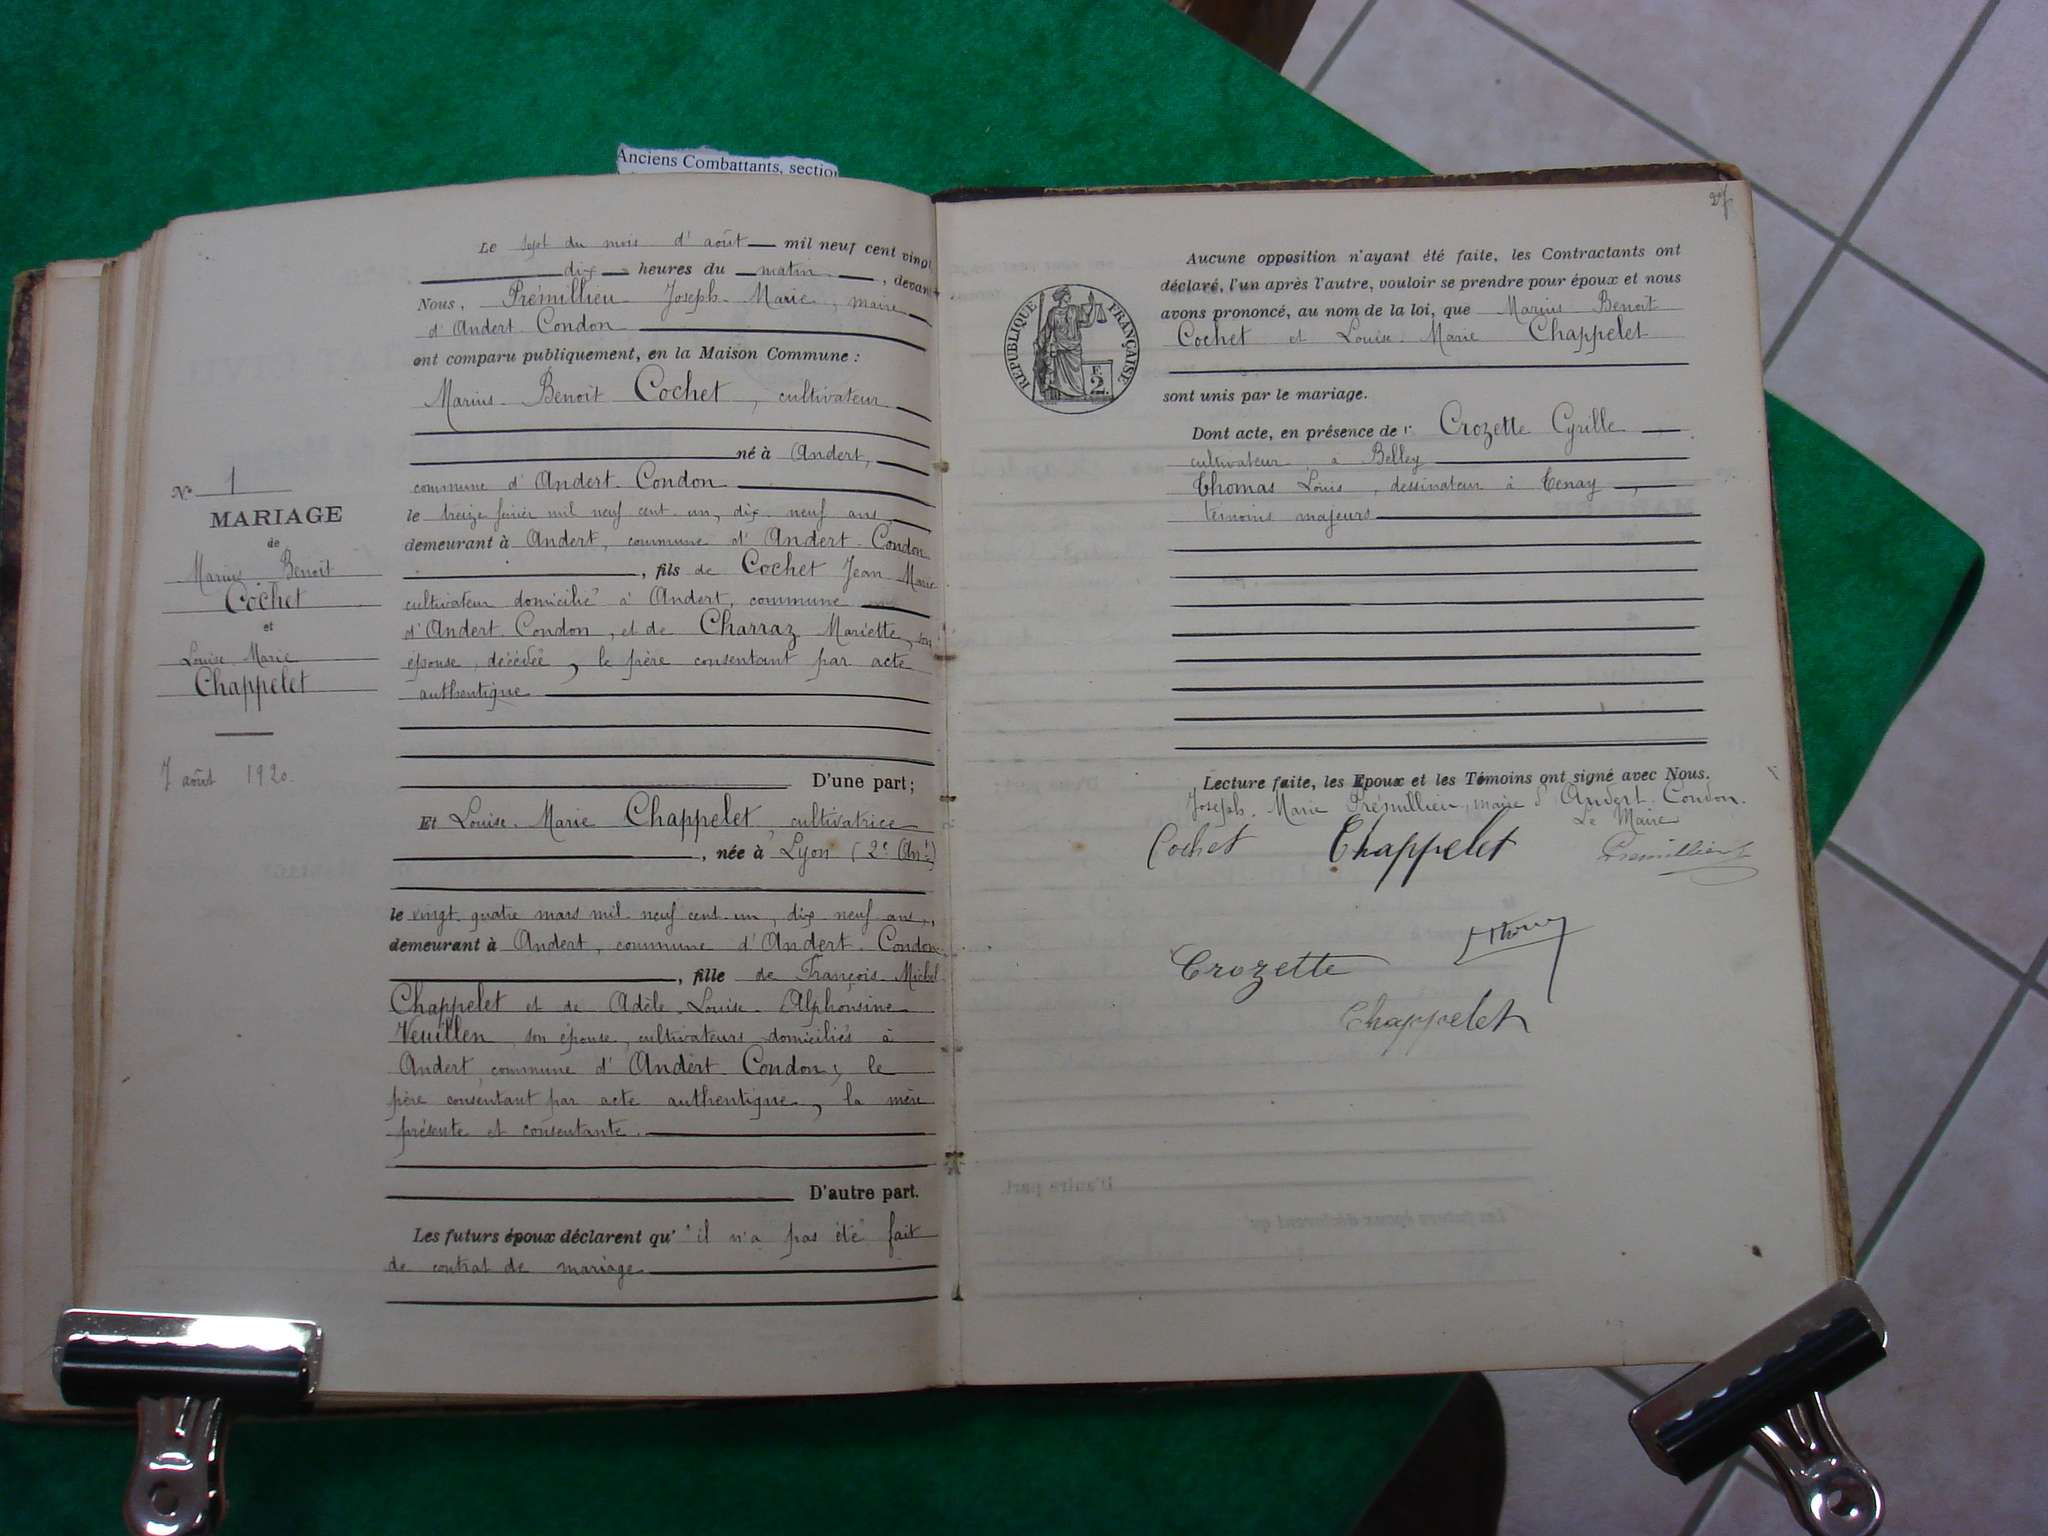 Anciens Combattants, section
Le sept du mois d'août mil neuf cent vingt
dix heures du matin, devant
Nous, Prémillieu Joseph-Marie, maire
d'Andert-Condon
ont comparu publiquement, en la Maison Commune :
Marius-Benoît Cochet, cultivateur
né à Andert,
commune d'Andert-Condon
le treize février mil neuf cent un, dix neuf ans,
demeurant à Andert, commune d'Andert-Condon
, fils de Cochet Jean Marie
cultivateur domicilié à Andert, commune
d'Andert-Condon, et de Charraz Mariette, son
épouse, décédée, le père consentant par acte
authentique
D'une part;
Et Louise-Marie Chappelet, cultivatrice
, née à Lyon (2e Art)
le vingt-quatre mars mil-neuf-cent-un, dix neuf ans,
demeurant à Andert, commune d'Andert-Condon
, fille de François-Michel
Chappelet et de Adèle-Louise-Alphonsine
Veuillen, son épouse, cultivateurs domiciliés à
Andert, commune d'Andert-Condon, le
père consentant par acte authentique, la mère
présente et consentante.
D'autre part.
Les futurs époux déclarent qu'il n'a pas été fait
de contrat de mariage
No 1
MARIAGE
de
Marius-Benoît
Cochet
et
Louise-Marie
Chappelet
7 août 1920.
27
RÉPUBLIQUE FRANÇAISE
F.
2.
Aucune opposition n'ayant été faite, les Contractants ont
déclaré, l'un après l'autre, vouloir se prendre pour époux et nous
avons prononcé, au nom de la loi, que Marius-Benoît
Cochet et Louise-Marie Chappelet
sont unis par le mariage.
Dont acte, en présence de : Crozette Cyrille
cultivateur à Belley
Thomas Louis, dessinateur à Tenay,
témoins majeurs
Lecture faite, les Epoux et les Témoins ont signé avec Nous.
Joseph-Marie Prémillieu, maire d'Andert-Condon.
Le Maire
Cochet Chappelet Prémillieu
Crozette
Chappelet